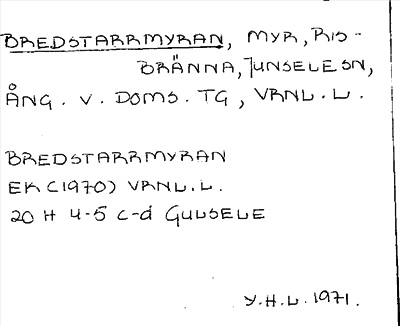 BREDSTARRMYRAN, MYR, RIS-
BRÄNNA, JUNSELE SN,
ÅNG. V. DOMS. TG, VRNL. L.
BREDSTARRMYRAN
EK (1970) VRNL. L.
20 H 4-5 c-d GULSELE
Y.H.L. 1971.